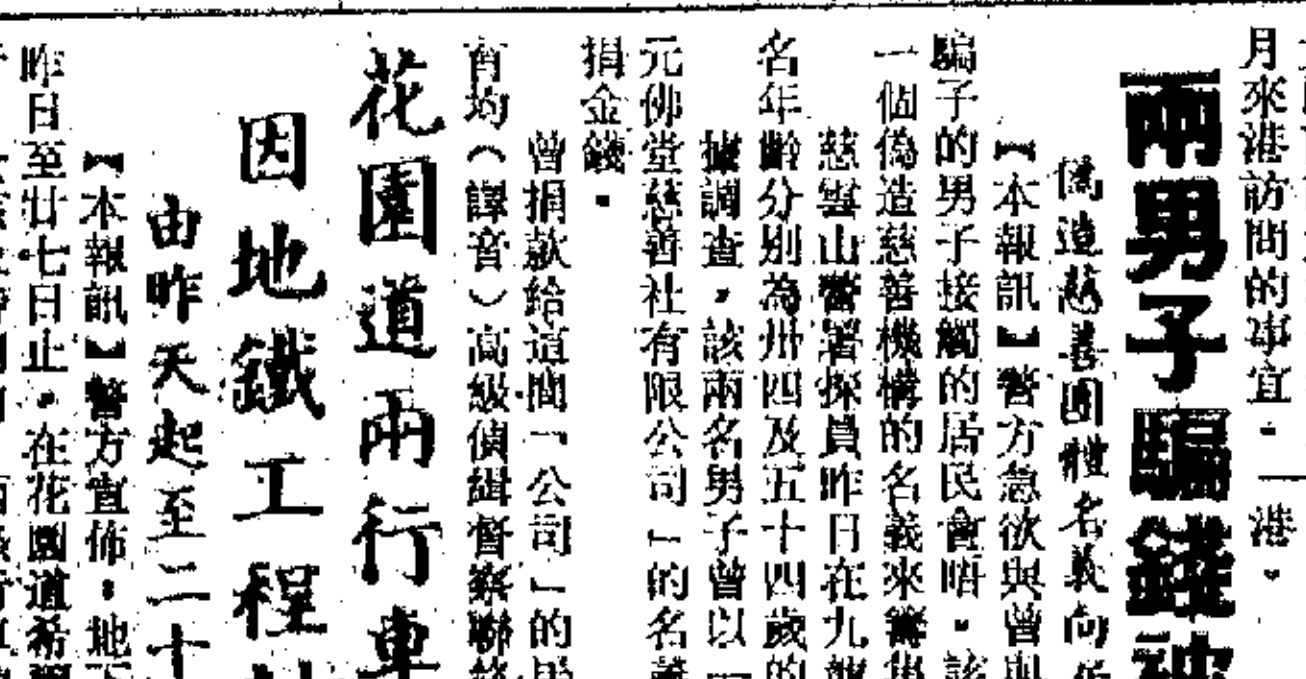 月來港訪問的事宜。 港。
兩男子騙錢被
偽造慈善團體名義向
【本報訊】警方急欲與曾與
騙子的男子接觸的居民會晤。該
一個偽造慈善機構的名義來籌集
慈雲山警署探員昨日在九龍
名年齡分別為卅四及五十四歲的
據調查,該兩名男子曾以「
元佛堂慈善社有限公司」的名義
捐金錢。
曾捐款給這間「公司」的居
有均(譯音)高級偵緝督察聯絡
花園道兩行車
因地鐵工程
由昨天起至二十
【本報訊】警方宣佈:地下
昨日至廿七日止。在花園道希